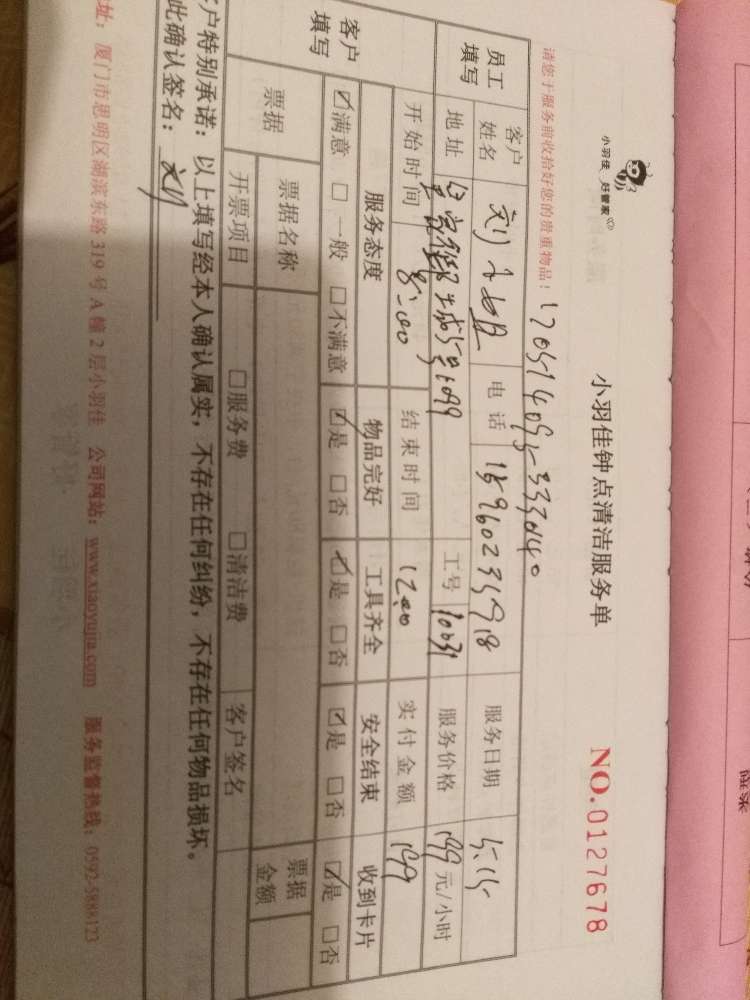 小羽佳 好管家
小羽佳钟点清洁服务单
NO.0127678
请您于服务前收拾好您的贵重物品!
员工填写 客户姓名 刘小姐 电话 服务日期 5.15
地址 工号 10031 服务价格 199 元/小时
客户填写 开始时间 结束时间 12:00 实付金额 199
服务态度 物品完好 工具齐全 安全结束 收到卡片
☑满意 □一般 □不满意 ☑是 □否 ☑是 □否 ☑是 □否 ☑是 □否
票据 票据名称 票据金额
开票项目 □服务费 □清洁费 客户签名
客户特别承诺:以上填写经本人确认属实,不存在任何纠纷,不存在任何物品损坏。
此确认签名:刘
址:厦门市思明区湖滨东路 319 号 A 幢 2 层小羽佳 公司网站:www.xiaoyujia.com 服务监督热线:0592-5888123